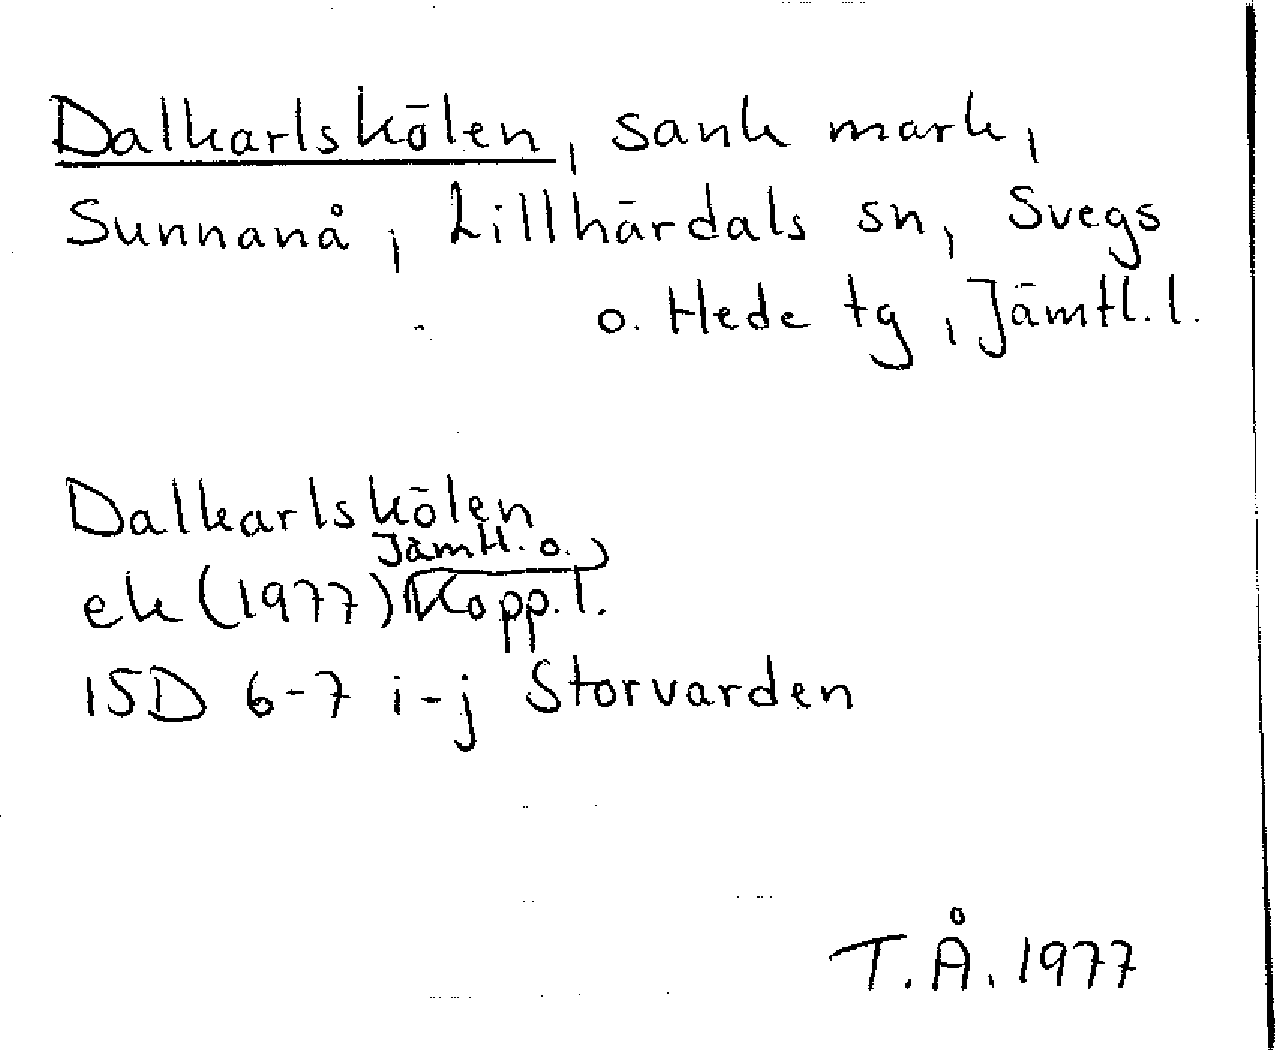 Dalkarlskölen, sank mark,
Sunnanå, Lillhärdals sn, Svegs
o. Hede tg, Jämtl. l.
Dalkarlskölen
Jämtl. o.
ek (1977) Kopp. l.
15D 6-7 i-j Storvarden
T. Å. 1977